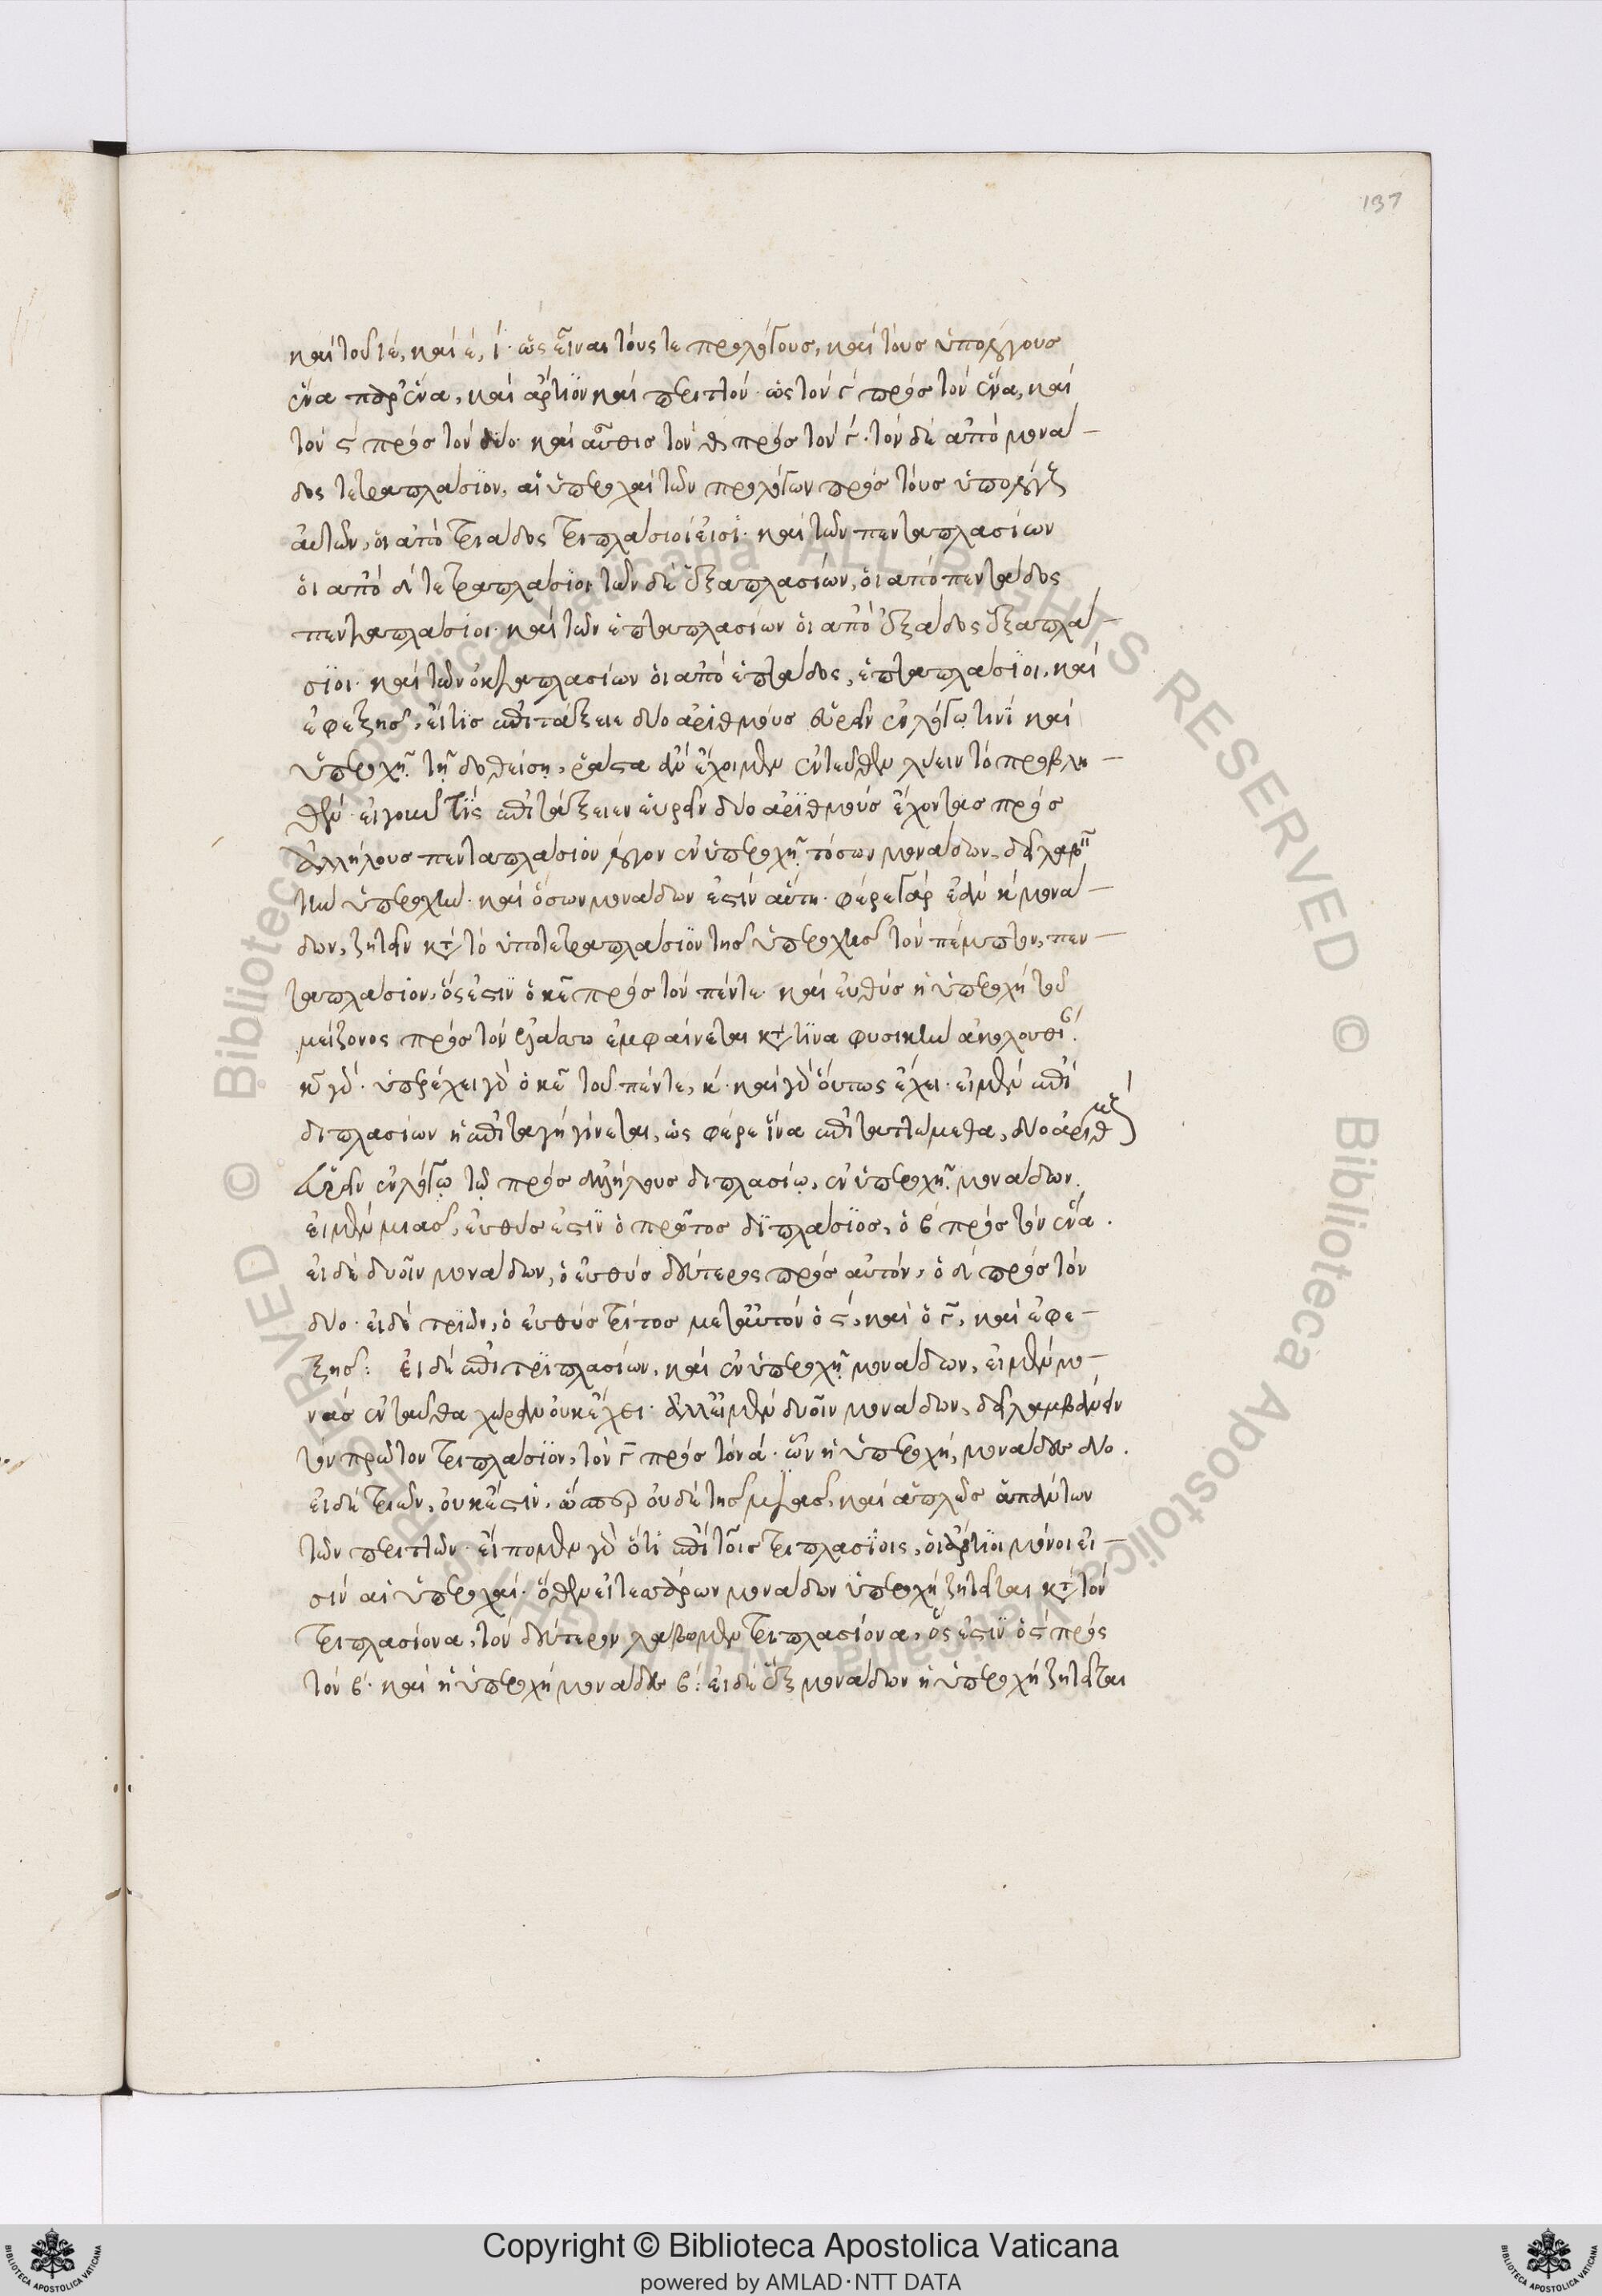 137
καὶ τοῦ ιέ, καὶ έ, ί· ὡς εἶναι τούς τε προλόγους, καὶ τοὺς ὑπολόγους
ἕνα παρ' ἕνα, καὶ ἄρτιον καὶ περιττόν· ὡς τὸν γ πρὸς τὸν ἕνα, καὶ
τὸν ς πρὸς τὸν δύο· καὶ αὖθις τὸν θ πρὸς τὸν γ· τῶν δὲ ἀπὸ μονά-
δος τετραπλασίων, αἱ ὑπεροχαὶ τῶν προλόγων πρὸς τοὺς ὑπολόγους
αὐτῶν, οἱ ἀπὸ τριάδος τριπλάσιοί εἰσι· καὶ τῶν πενταπλασίων
οἱ ἀπὸ δ τετραπλάσιοι τῶν δὲ ἑξαπλασίων, οἱ ἀπὸ πεντάδος
πενταπλάσιοι· καὶ τῶν ἑπταπλασίων οἱ ἀπὸ ἑξάδος ἑξαπλά-
σιοι· καὶ τῶν ὀκταπλασίων οἱ ἀπὸ ἑπτάδος, ἑπταπλάσιοι, καὶ
ἐφεξῆς, εἴ τις ἐπιτάξειε δύο ἀριθμοὺς εὑρεῖν ἐν λόγῳ τινὶ καὶ
ὑπεροχῇ τῇ δοθείσῃ, ῥᾷστα ἂν ἔχοιμεν ἐντεῦθεν λύειν τὸ προβλη-
θέν· εἰ γοῦν τίς ἐπιτάξειεν εὑρεῖν δύο ἀριθμοὺς ἔχοντας πρὸς
ἀλλήλους πενταπλάσιον λόγον ἐν ὑπεροχῇ πόσων μονάδων, δεῖ λαβεῖν
τὴν ὑπεροχὴν· καὶ ὅσων μονάδων ἐστὶν αὕτη· φέρε γὰρ ἐὰν κ μονά-
δων, ζητεῖν κατὰ τὸ ὑποτετραπλάσιον τῆς ὑπεροχῆς τὸν πέμπτον, πεν-
ταπλάσιον, ὅς ἐστιν ὁ κε πρὸς τὸν πέντε· καὶ εὐθὺς ἡ ὑπεροχὴ τοῦ
μείζονος πρὸς τὸν ἐλάττω ἐμφαίνεται κατά τινα φυσικὴν ἀκολουθί
κ γάρ· ὑπερέχει γὰρ ὁ κε τοῦ πέντε, κ· καὶ γὰρ οὕτως ἔχει· εἰ μὲν ἐπὶ
διπλασίων ἡ ἐπιταγὴ γίνεται, ὡς φέρε ἵνα ἐπιταττώμεθα, δύο ἀριθμοὺς
εὑρεῖν ἐν λόγῳ τῷ πρὸς ἀλλήλους διπλασίῳ, ἐν ὑπεροχῇ μονάδων.
εἰ μὲν μιᾶς, εὐθύς ἐστιν ὁ πρῶτος διπλάσιος, ὁ β πρὸς τὸν ἕνα.
εἰ δὲ δυοῖν μονάδων, ὁ εὐθὺς δεύτερος πρὸς αὐτόν, ὁ δ πρὸς τὸν
δύο· εἰ δὲ τριῶν, ὁ εὐθὺς τρίτος μετ' αὐτὸν ὁ ς, καὶ ὁ γ, καὶ ἐφε-
ξῆς: εἰ δὲ ἐπὶ τριπλασίων, καὶ ἐν ὑπεροχῇ μονάδων, εἰ μὲν μο-
νὰς ἐνταῦθα χώραν οὐκ ἔχει· ἀλλ' εἰ μὲν δυοῖν μονάδων, δεῖ λαμβάνειν
τὸν πρῶτον τριπλάσιον, τὸν γ πρὸς τὸν ά· ὧν ἡ ὑπεροχή, μονάδες δύο.
εἰ δὲ τριῶν, οὐκ ἔστιν, ὥσπερ οὐδὲ τῆς μιᾶς, καὶ ἁπλῶς ἁπάντων
τῶν περιττῶν· εἴπομεν γὰρ ὅτι ἐπὶ τοῖς τριπλασίοις, οἱ ἄρτιοι μόνοι εἰ-
σὶν αἱ ὑπεροχαί· ὅθεν εἰ τεσσάρων μονάδων ὑπεροχὴ ζητεῖται κατὰ τὸν
τριπλασίονα, τὸν δεύτερον λάβωμεν τριπλασίονα, ὅς ἐστιν ὁ ς πρὸς
τὸν β· καὶ ἡ ὑπεροχὴ μονάδες β: εἰ δὲ ἓξ μονάδων ἡ ὑπεροχὴ ζητεῖται
Copyright © Biblioteca Apostolica Vaticana
powered by AMLAD·NTT DATA